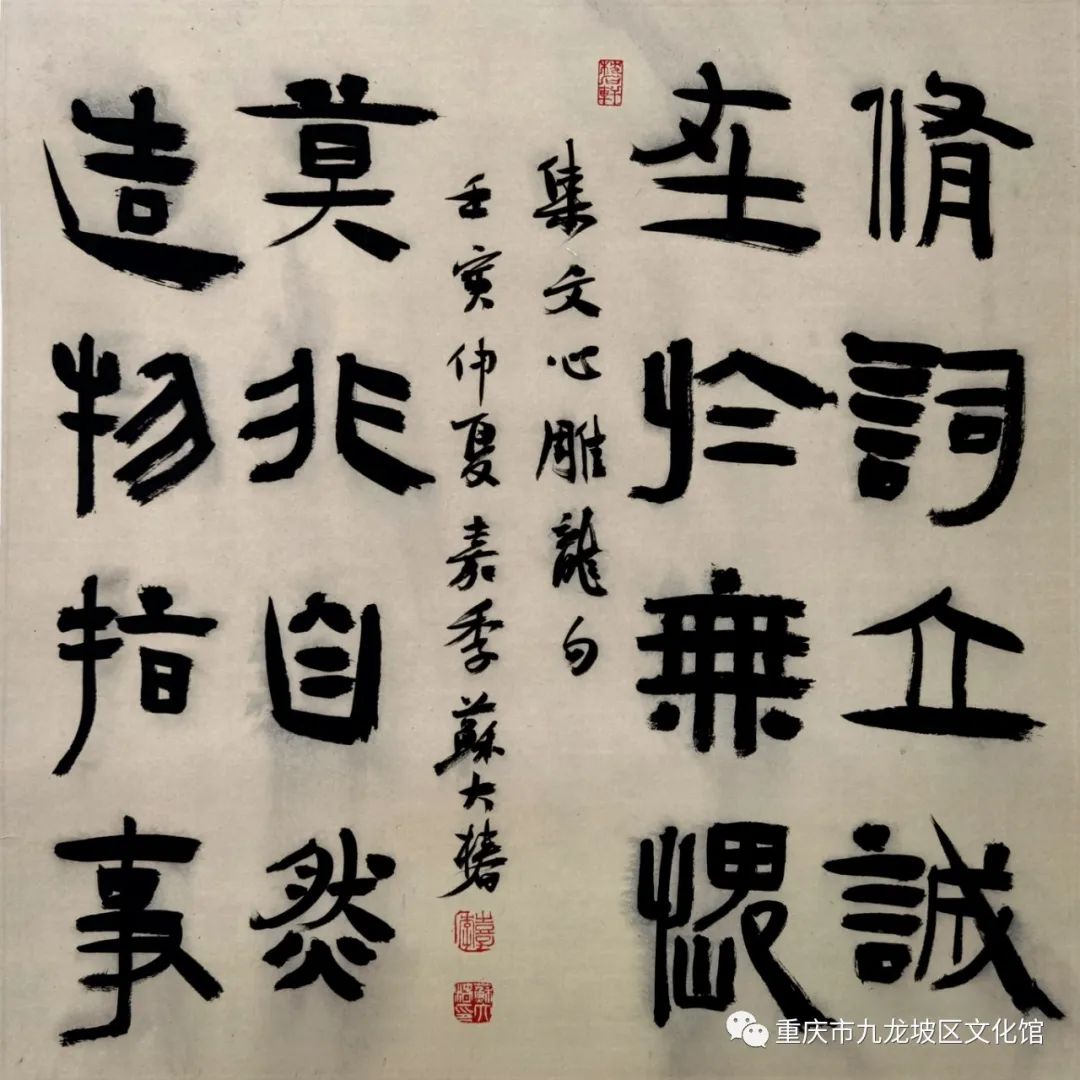 脩詞立誠
在於無愧
集文心雕龍句
壬寅仲夏嘉季蘇大椿
莫非自然
造物指事
重庆市九龙坡区文化馆